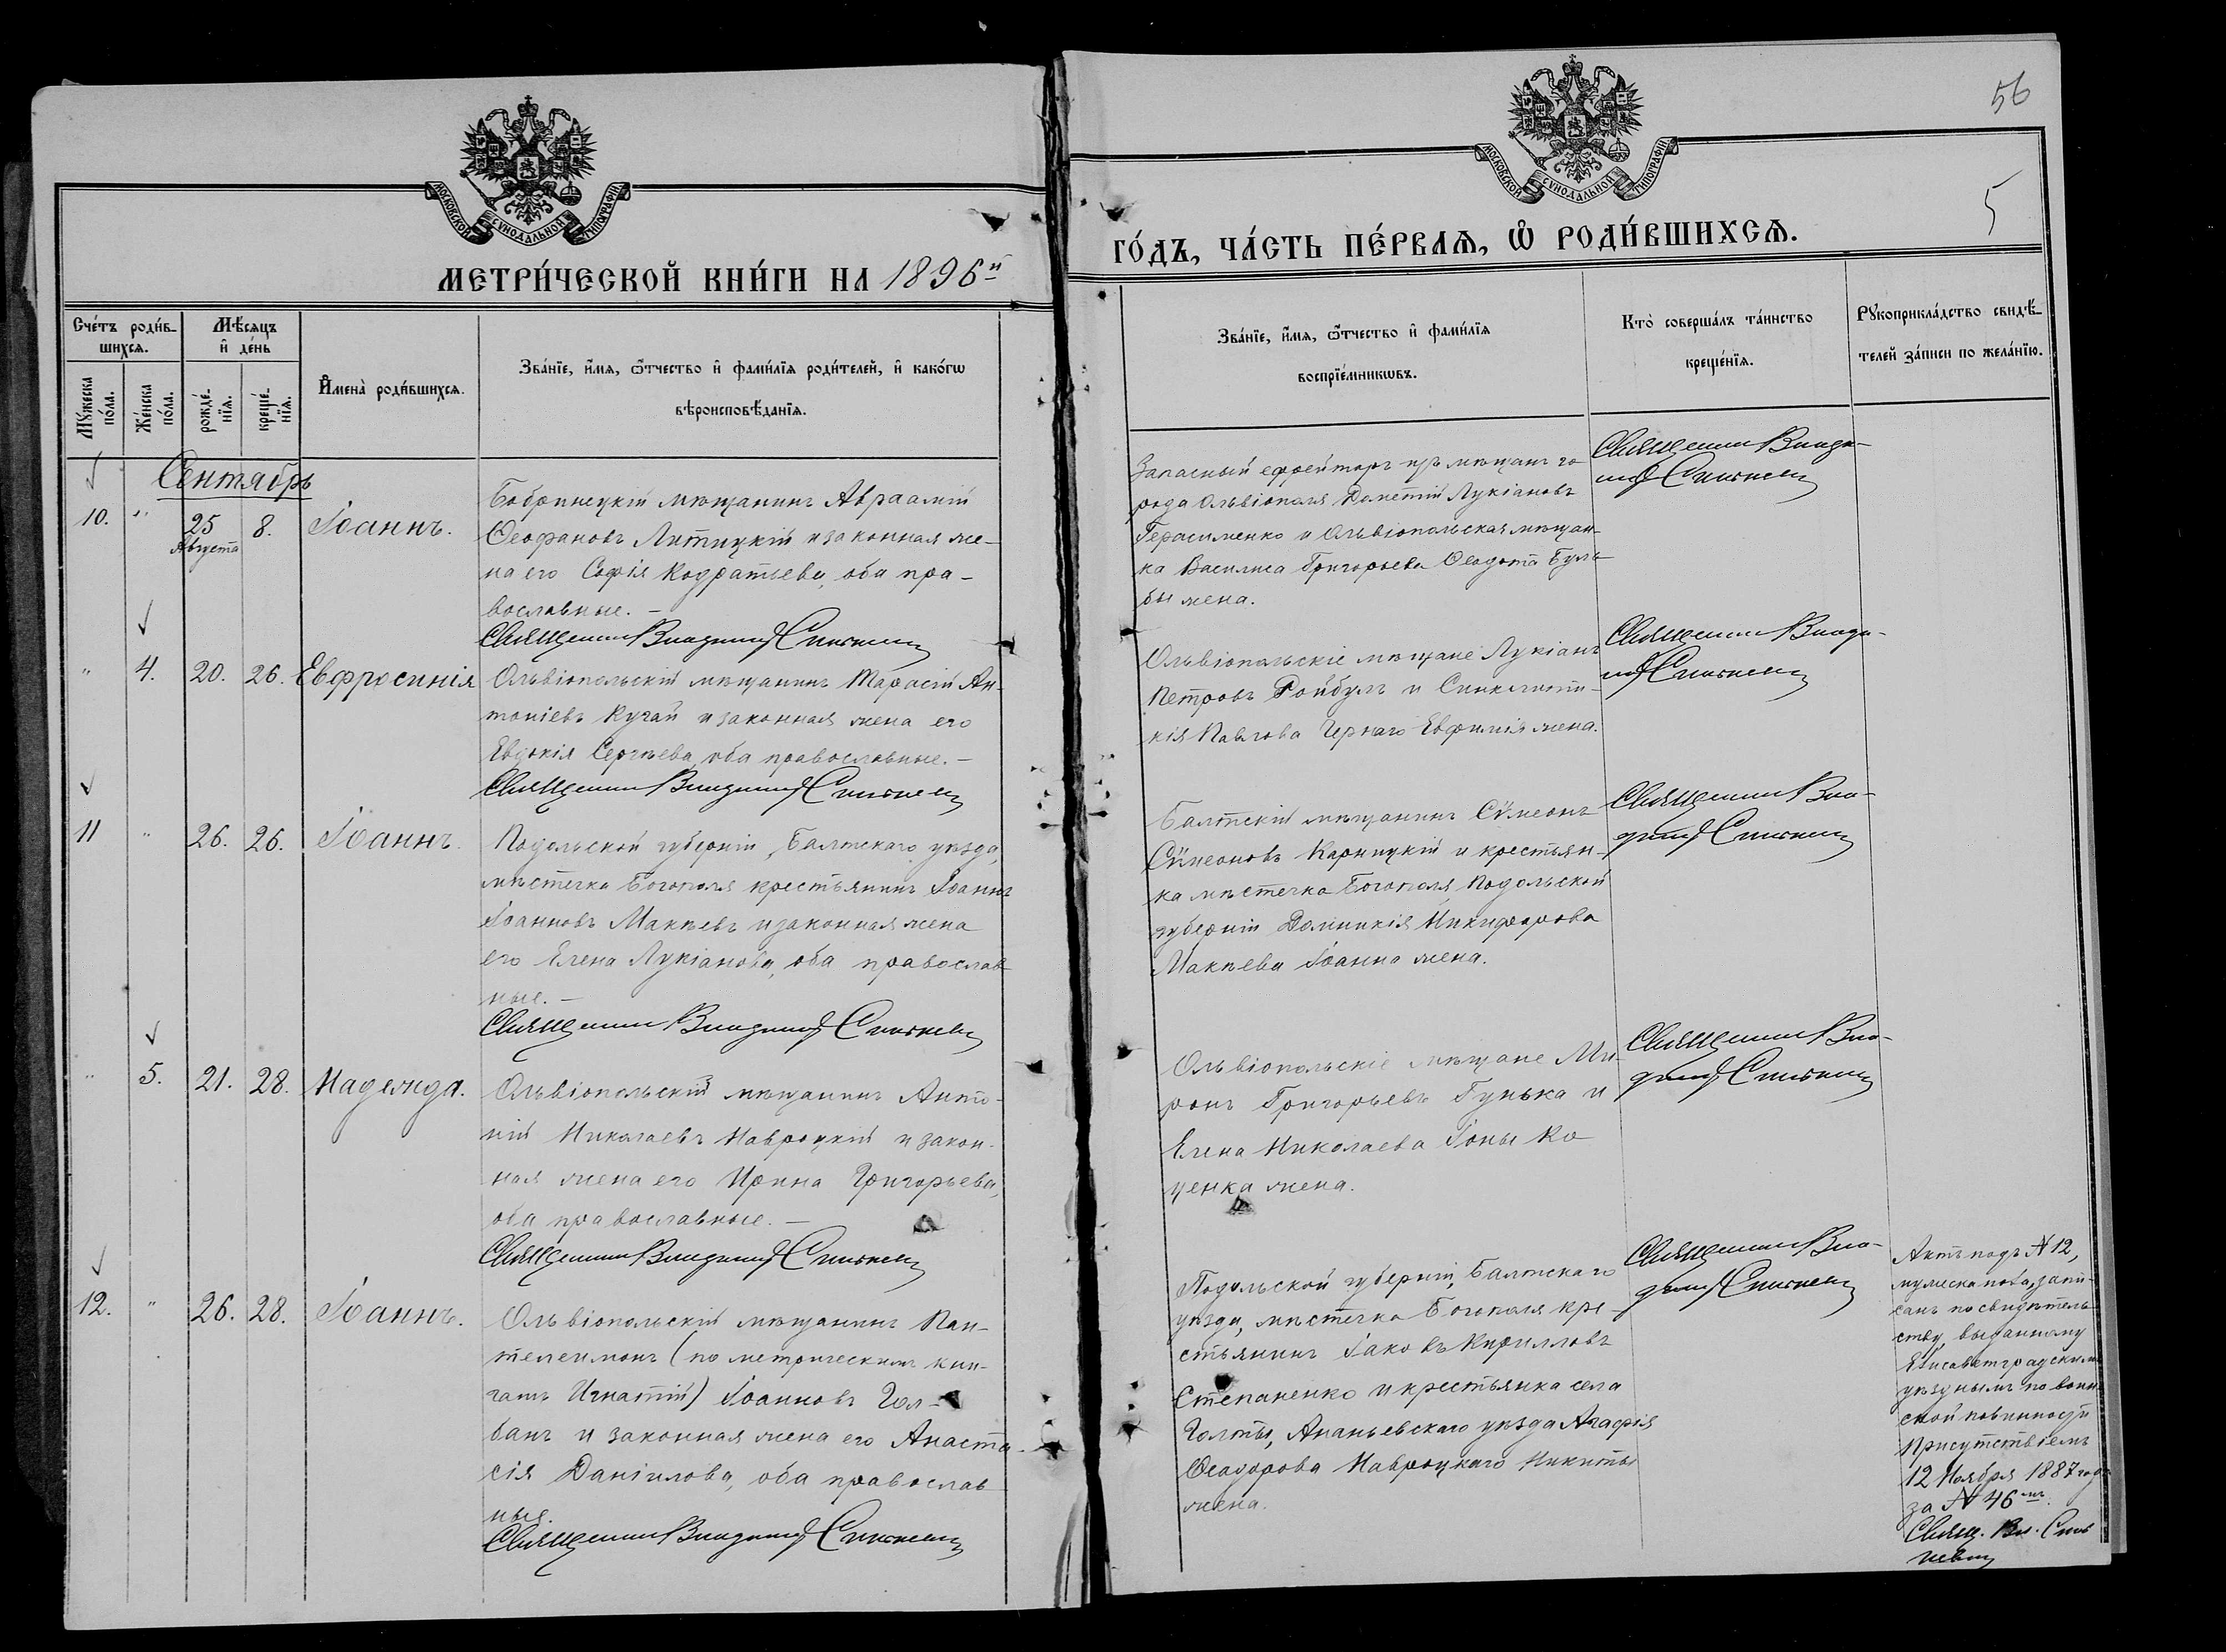 56
5
МОСКОВСКОЙ СУНОДАЛЬНОЙ ТИПОГРАФІИ
МОСКОВСКОЙ СУНОДАЛЬНОЙ ТИПОГРАФІИ
МЕТРИ́ЧЕСКОЙ КНИ́ГИ НА 1896й
ГО́ДЪ, ЧА́СТЬ ПЕ́РВАѦ, Ѡ҆ РОДИ́ВШИХСѦ.
Сче́тъ роди́в-
шихсѧ.
Мѣ́сѧцъ
и҆ де́нь
Мꙋ́жеска
по́ла.
Же́нска
по́ла.
рожде́-
нїѧ.
креще́-
нїѧ.
И҆мена̀ роди́вшихсѧ.
Зва́нїе, и҆́мѧ, ѻ҆́тчество и҆ фами́лїѧ роди́телей, и҆ како́гѡ
вѣроисповѣ́данїѧ.
Зва́нїе, и҆́мѧ, ѻ҆́тчество и҆ фами́лїѧ
воспрїе́мникѡвъ.
Кто̀ соверша́лъ та́инство
креще́нїѧ.
Рꙋкоприкла́дство свидѣ́-
телей за́писи по жела́нїю.
Сентябрь
10. " 25 Августа 8. Іоаннъ.
Бобринецкій мѣщанинъ Авраамій
Ѳеофановъ Литицкій и законная же-
на его Софія Кодратьева, оба пра-
вославные. –
Священникъ Владимір
Запасный ефрейторъ изъ мѣщанъ го
рода Ольвіополя Дометій Лукіановъ
Герасименко и Ольвіопольская мѣщан-
ка Василиса Григорьева Ѳеодота Буль
бы жена.
Священникъ Влади-
мір
" 4. 20. 26. Евфросинія
Ольвіопольскій мѣщанинъ Тарасій Ан-
тоніевъ Кучай и законная жена его
Евдокія Сергѣева, оба православные. –
Священникъ Владимір
Ольвіопольскіе мѣщане Лукіанъ
Петровъ Ройбулъ и Синклити-
кія Павлова Чернаго Евфимія жена.
Священникъ Влади-
мір
11 " 26. 26. Іоаннъ.
Подольской губерніи, Балтскаго уѣзда,
мѣстечка Богополя крестьянинъ Іоаннъ
Іоанновъ Макѣевъ и законная жена
его Елена Лукіанова, оба православ-
ные. –
Священникъ Владимір
Балтскій мѣщанинъ Сѵмеонъ
Сѵмеоновъ Карницкій и крестьян-
ка мѣстечка Богополя, Подольской
губерніи Домникія Никифорова
Макѣева Іоанна жена.
Священникъ Вла-
димір
" 5. 21. 28. Надежда.
Ольвіопольскій мѣщанинъ Анто-
ній Николаевъ Навроцкій и закон-
ная жена его Ирина Григорьева,
оба православные. –
Священникъ Владимір
Ольвіопольскіе мѣщане Ми-
ронъ Григорьевъ Гунька и
Елена Николаева Іоны Ко
ценка жена.
Священникъ Вла-
димір
12. " 26. 28. Іоаннъ.
Ольвіопольскій мѣщанинъ Пан-
телеимонъ (по метрическимъ кни-
гамъ Игнатій) Іоанновъ Гол-
банъ и законная жена его Анаста-
сія Даніилова, оба православ
ные.
Священникъ Владимір
Подольской губерніи, Балтскаго
уѣзда, мѣстечка Богополя кре-
стьянинъ Іаковъ Кирилловъ
Степаненко и крестьянка села
Голты, Ананьевскаго уѣзда Агафія
Ѳеодорова Навроцкаго Никиты
жена.
Священникъ Вла-
димір
Актъ подъ № 12,
мужеска пола, запи-
санъ по свидѣтель-
ству, выданному
Елисаветградскимъ
уѣзднымъ по воин-
ской повинности
Присутствіемъ
12 Ноября 1887 года
за № 46мъ.
Свящ. Вл.